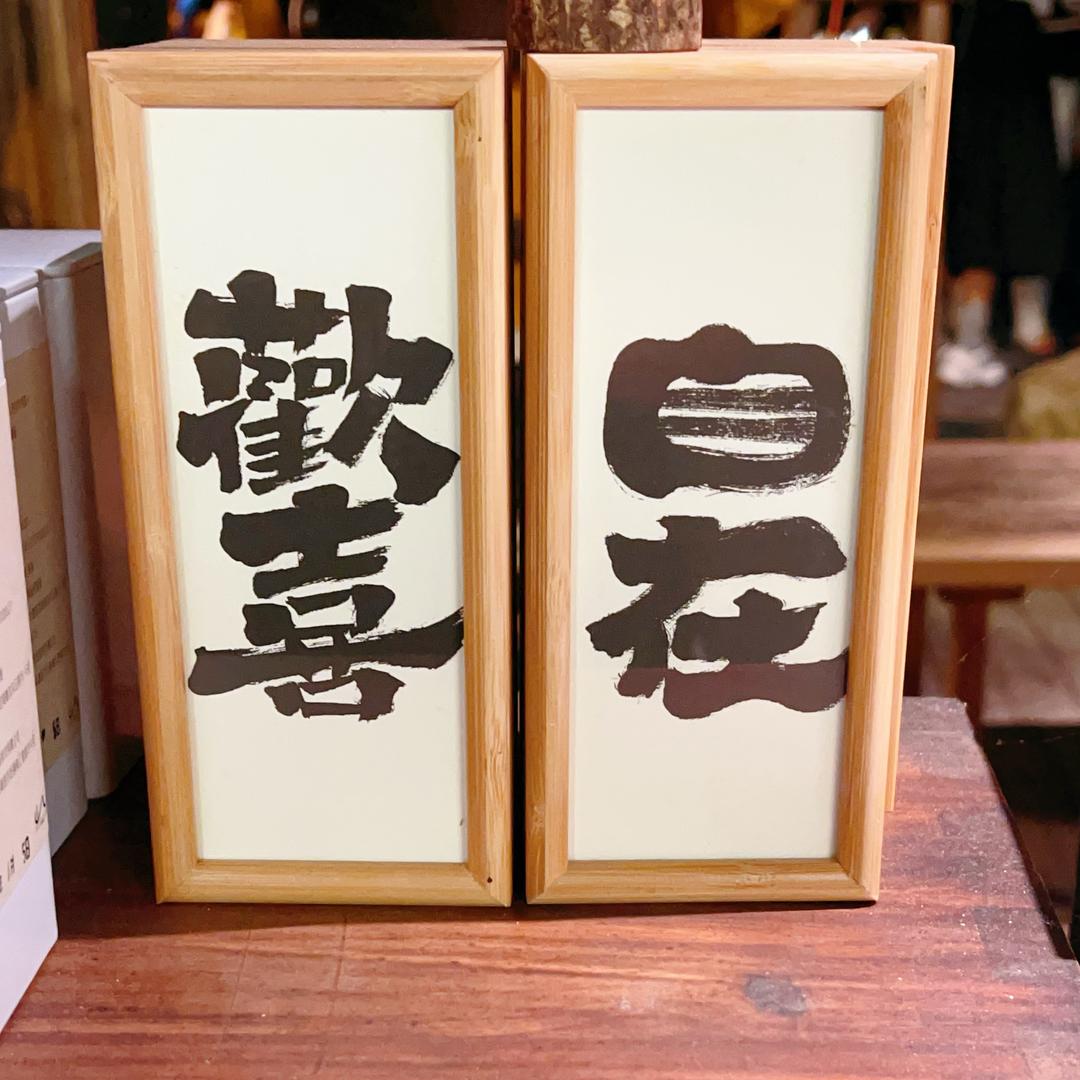 歡喜
自在